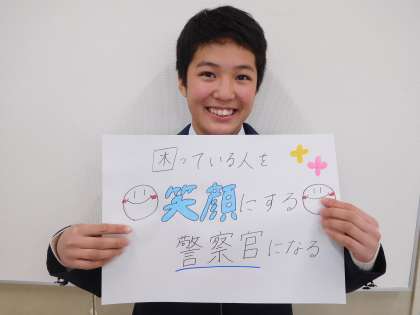 困っている人を
笑顔にする
警察官になる